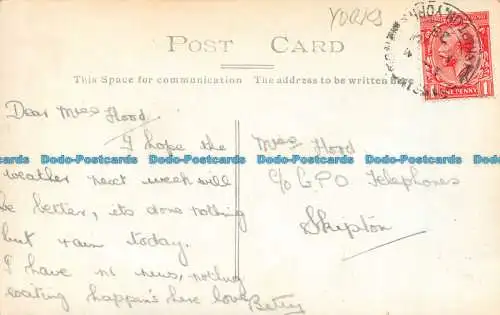 YORKS
POST CARD
This Space for communication The address to be written here
Dear Miss Hood
I hope the
weather next week will
be better, its done nothing
but rain today.
I have no news, nothing
exciting happen's here love Betty
Miss Hood
c/o G.P.O Telephones
Skipton
ONE PENNY
Dodo-Postcards Dodo-Postcards Dodo-Postcards Dodo-Postcards
Dodo-Postcards Dodo-Postcards Dodo-Postcards Dodo-Postcards